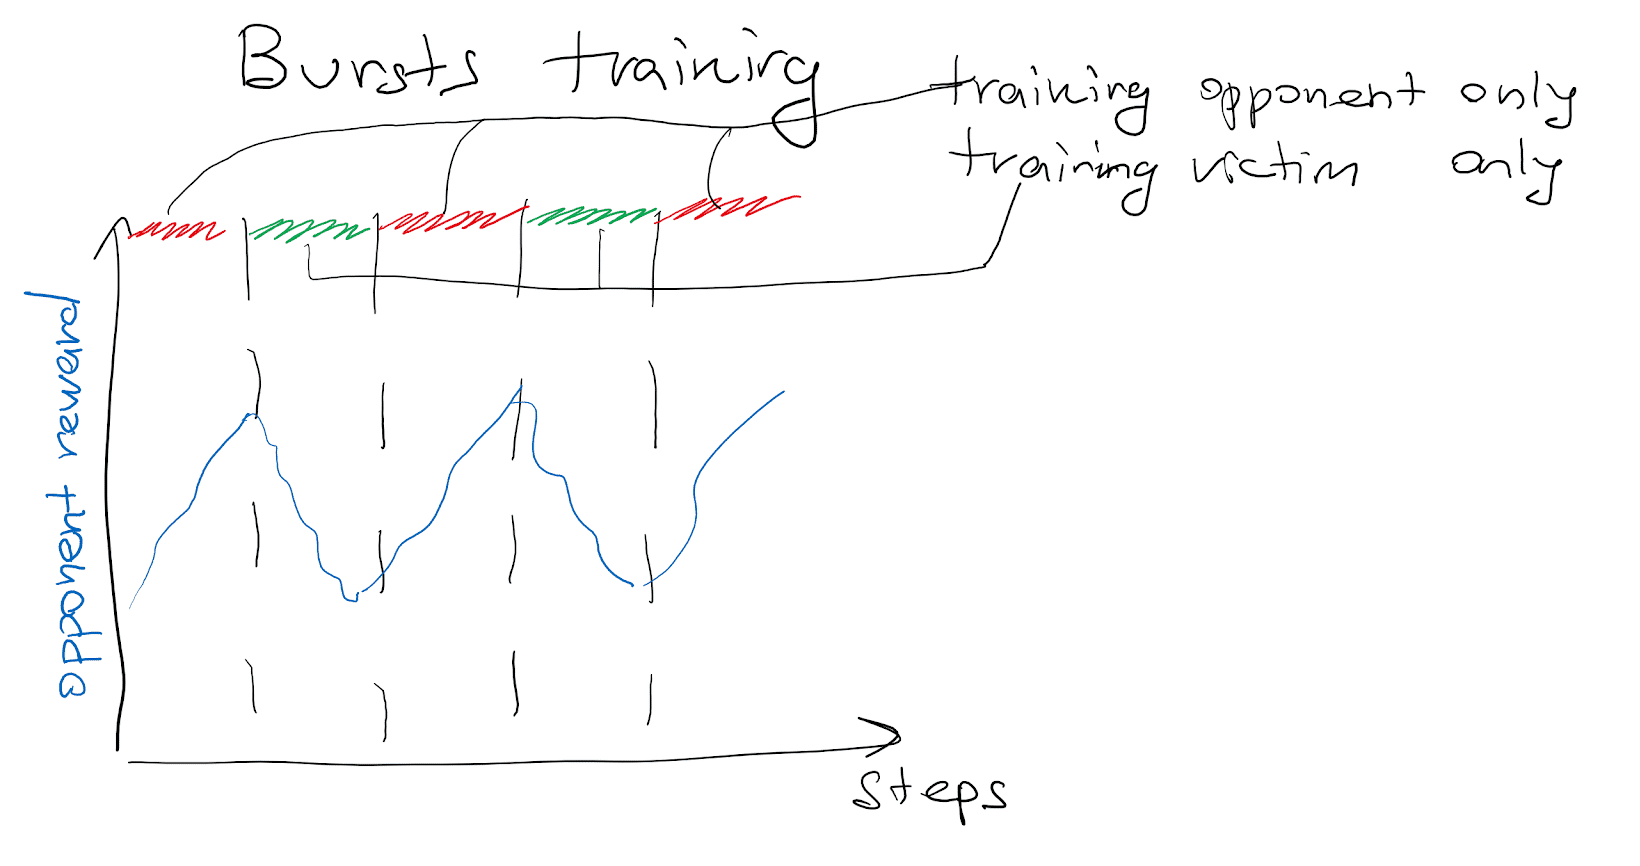 Bursts training
training opponent only
training victim only
opponent reward
steps